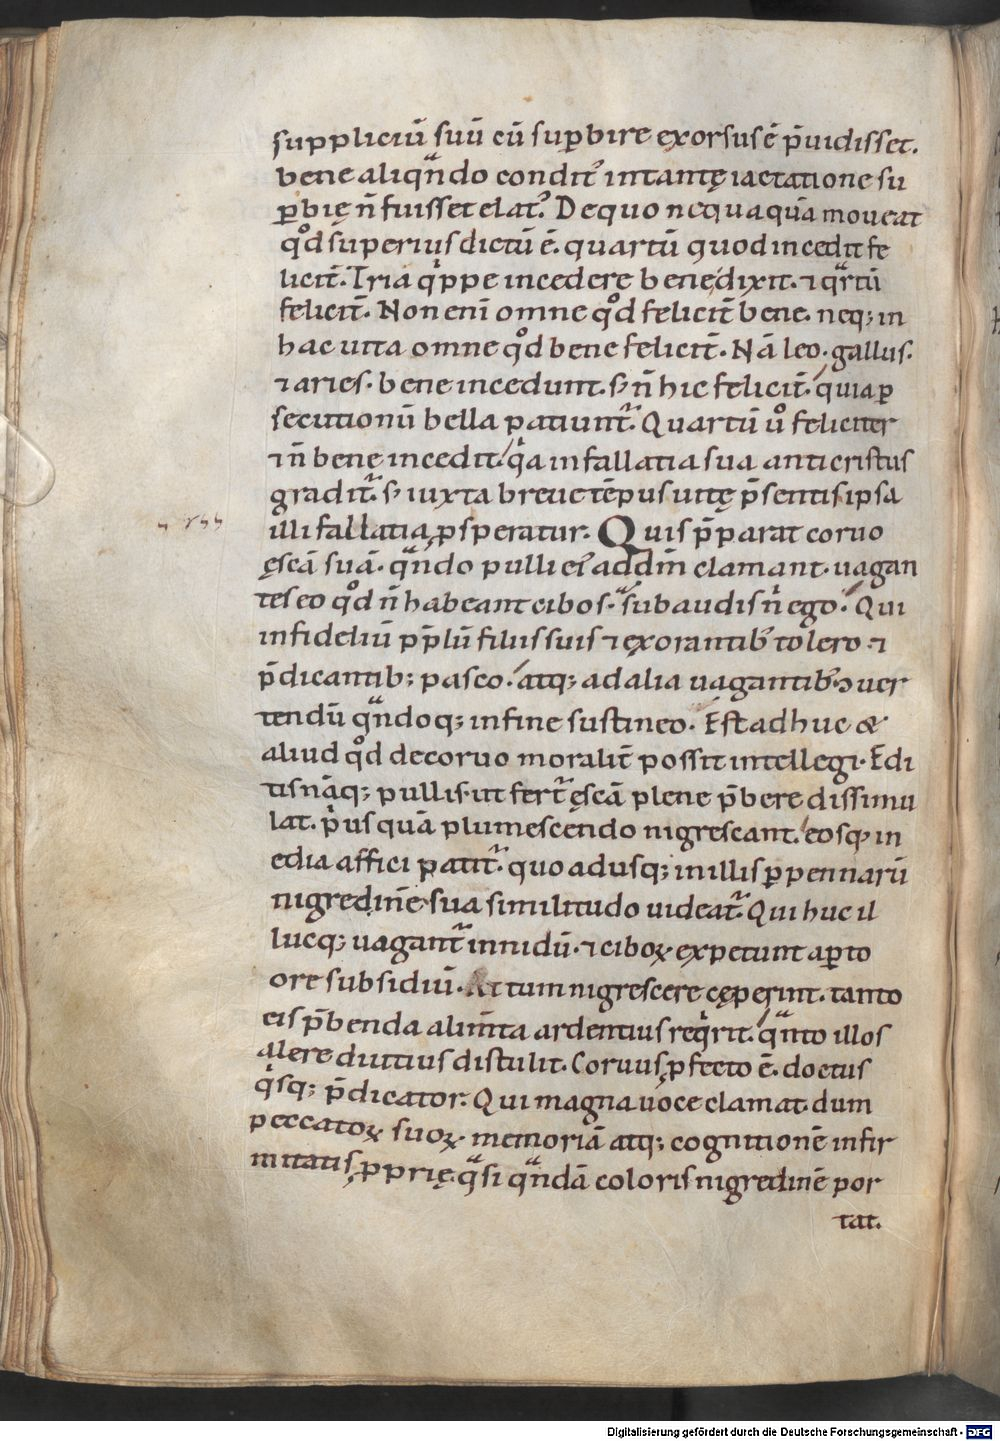 suppliciū suū cū suꝑbire exorsus ē p̄uidisset.
bene aliqͣndo condit᷒ in tantę iactatione su
ꝑbię n̄ fuisset elat᷒. De quo nequaquā moueat
qͦd superius dictū ē. quartū quod incedit fe
licit̄. Tria qͥppe incedere bene dixit. ⁊ qͣrtū
felicit̄. Non enī omne qͦd felicit̄ bene. neq; in
hac uita omne qͦd bene felicit̄. Nā leo. gallus.
⁊ aries. bene incedunt. s; n̄ hic felicit̄. quia ꝑ
secutionū bella patiunt᷑. Quartū ů feliciter
⁊ n̄ bene incedit. qͥa in fallatia sua anticristus
gradit᷑. s; iuxta breue tēpus uitę p̄sentis ipsa
illi fallatia ꝓsperatur. Quis p̄parat coruo
ęscā suā. qͣndo pulli ei᷒ ad dm̄ clamant. uagan
tes eo qͦd n̄ habeant cibos. subaudis nͥ ego. Qui
infideliū pp̄lū filiis suis ⁊ exorantib᷒ tolero. ⁊
p̄dicantib; pasco. atq; ad alia uagantib᷒ ↄuer
tendū qͣndoq; in fine sustineo. Est adhuc &
aliud qͦd de coruo moralit̄ possit intellegi. Edi
tis nāq; pullis. ut fert᷑ ęscā plene p̄bere dissimu
lat. pͥusquā plumescendo nigrescant. eosq; in
edia affici patit᷑. quo adusq; in illis ꝑ pennarū
nigredinē sua similitudo uideat᷑. Qui huc il
lucq; uagant᷑ in nidū. ⁊ ciboꝝ expetunt aꝑto
ore subsidiū. At tum nigrescere cęperint. tanto
eis p̄benda alim̄ta ardentius reqͥrit. qͣnto illos
alere diutius distulit. Coruus ꝓfecto ē. doctus
qͥsq; p̄dicator. Qui magna uoce clamat. dum
peccatoꝝ suoꝝ memoriā atq; cognitionē infir
mitatis ꝓprię. qͣsi qͣndā coloris nigredinē por
tat.
Digitalisierung gefördert durch die Deutsche Forschungsgemeinschaft - DFG